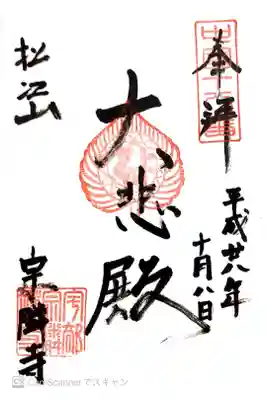 奉拝
平成廿八年
十月八日
大悲殿
松江山
宗隣寺
CamScanner でスキャン